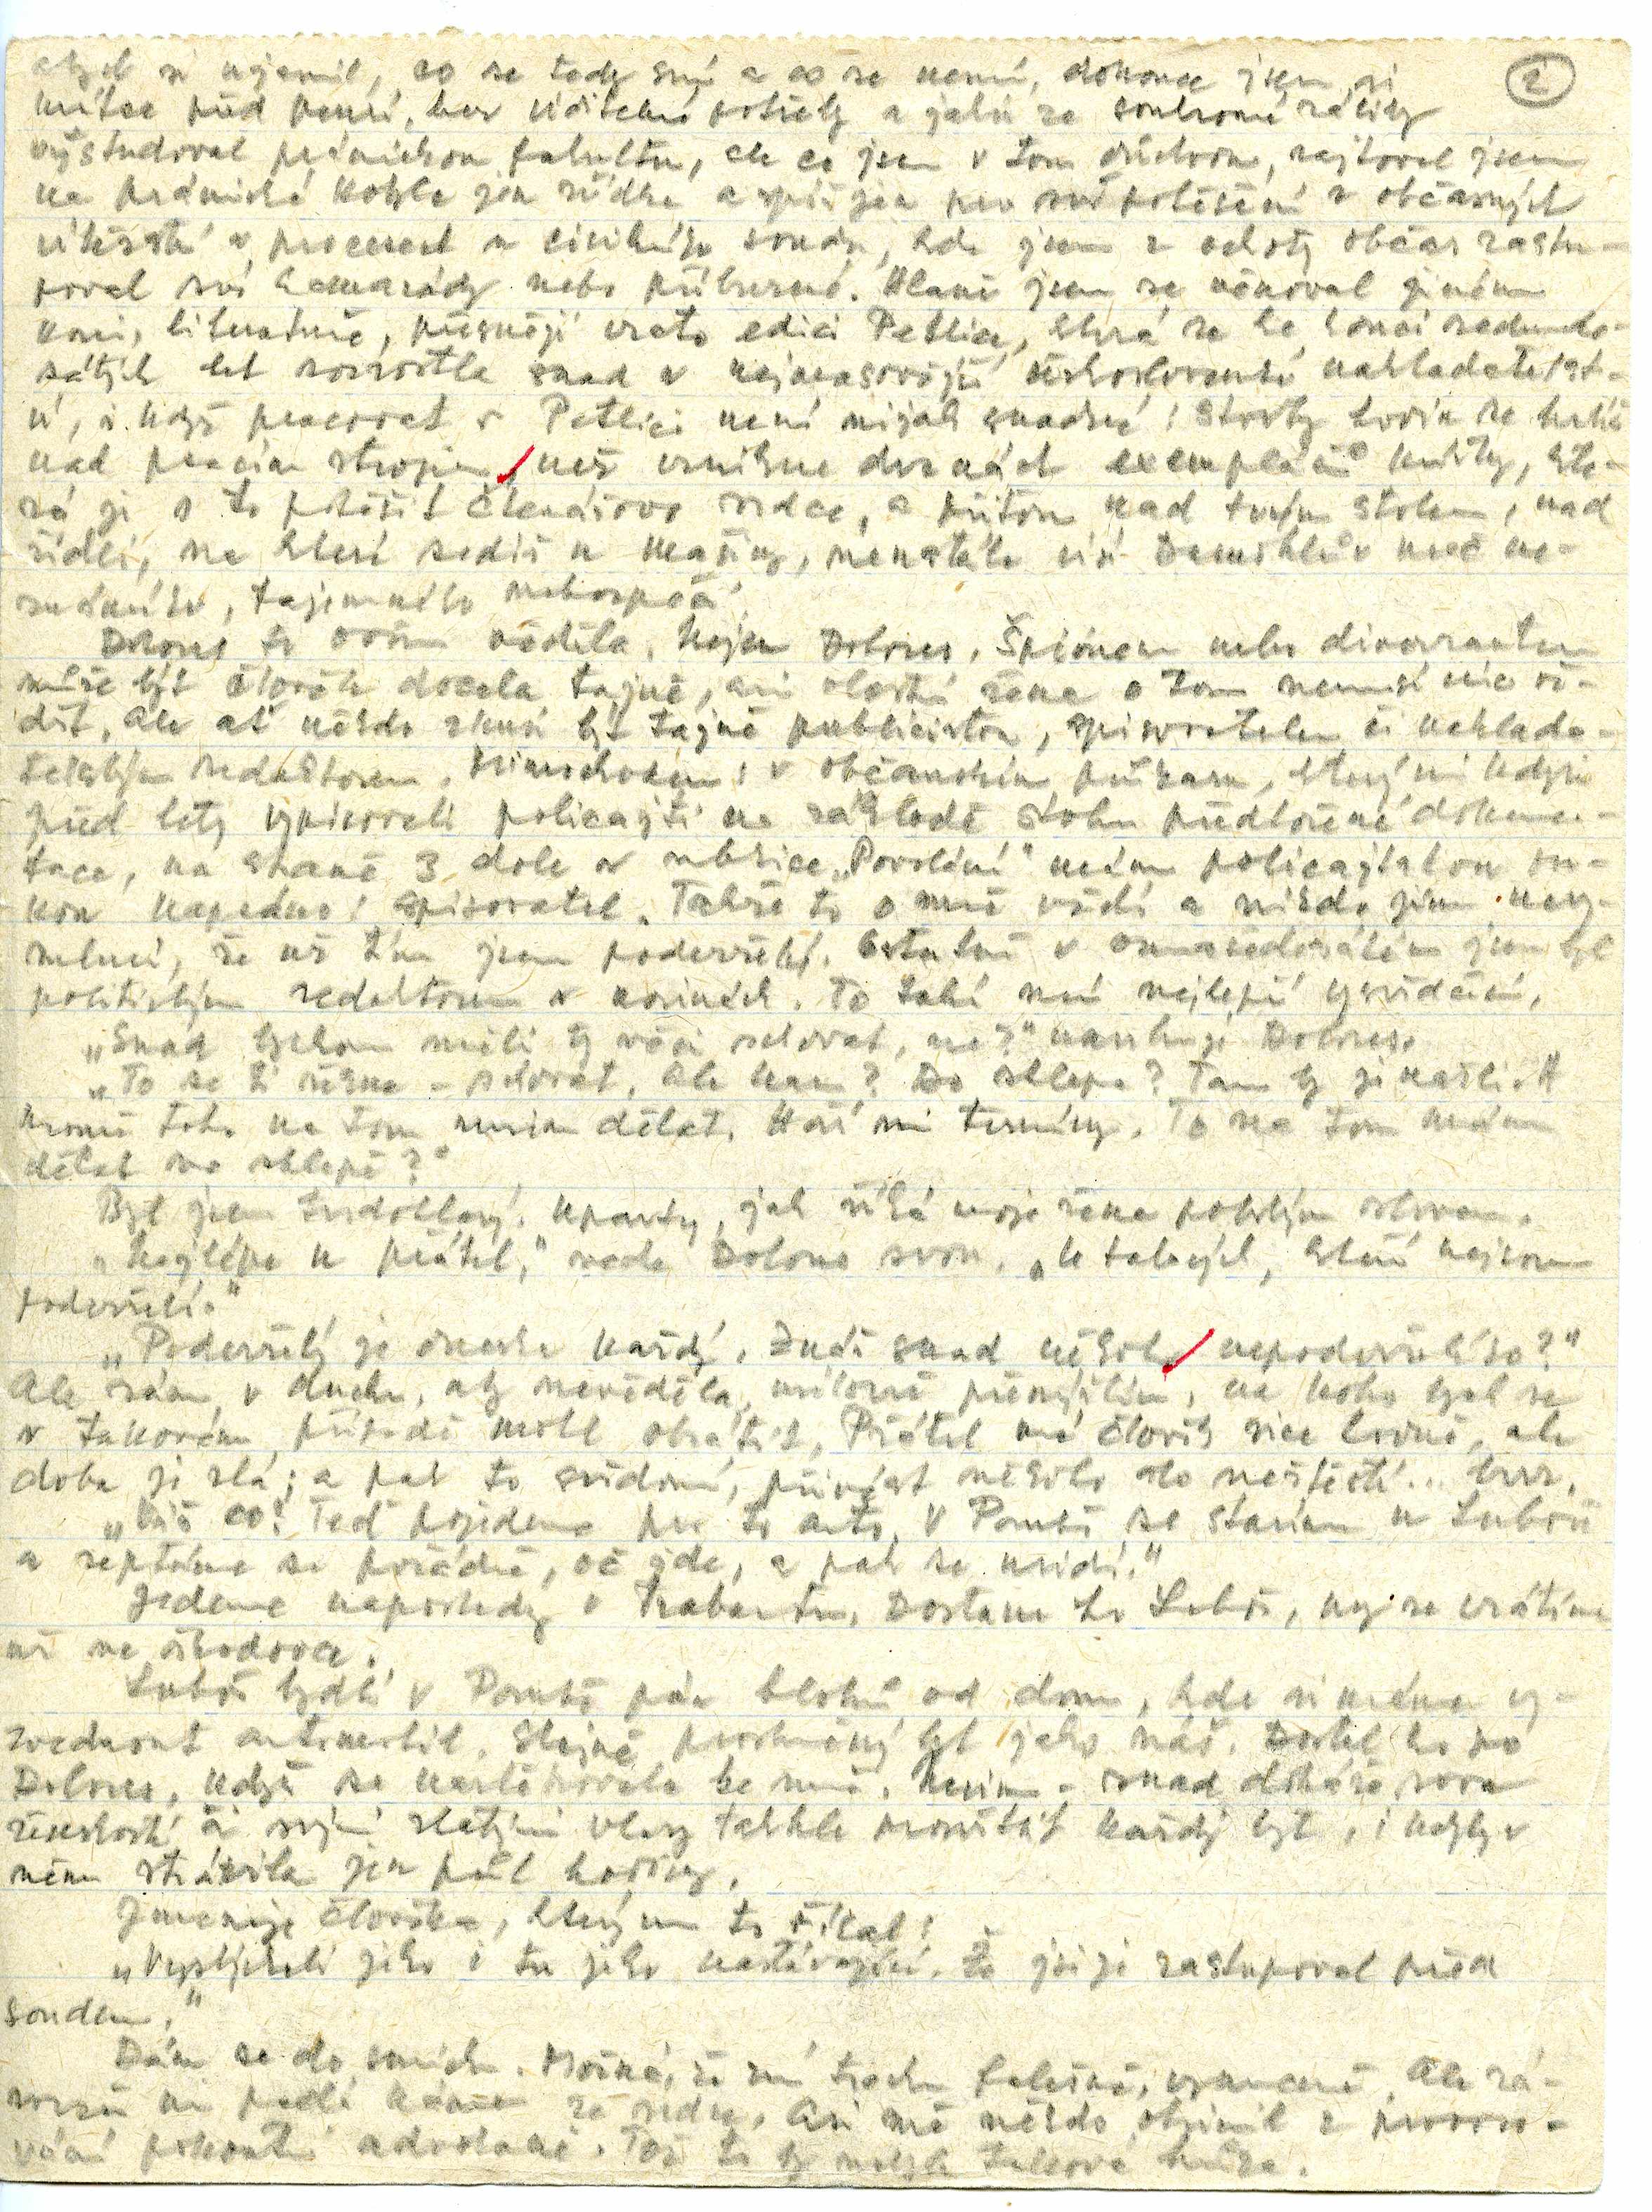 abych si ujasnil, co se tedy smí a co se nesmí, dokonce jsem si 2
krátce před penzí, bez viditelné potřeby a jaksi ze soukromé záliby
vystudoval právnickou fakultu, ale co jsem v tom důchodu, zajížděl jsem
na právnické kolbiště jen zřídka a spíš jen pro své potěšení z občasných
vítězství v procesech u civilního soudu, kde jsem z ochoty občas zastu-
poval své kamarády nebo příbuzné. Hlavně jsem se věnoval jinému
koni, literatuře, přesněji vzato edici Petlice, která se ke konci sedmde-
sátých let rozrostla snad v nejmasovější československé nakladatelst-
ví, i když pracovat v Petlici není nijak snadné: stovky hodin se hrbíš
nad psacím strojem, než vznikne dvanáct exemplářů knížky, kte-
rá jde potěšit čtenářovo srdce, a přitom nad tvým stolem, nad
židlí, na které sedíš u mašiny, neustále visí Damoklův meč ne-
známého, tajemného nebezpečí.
Dolores to ovšem věděla. Nejen Dolores. Špiónem nebo diverzantem
může být člověk docela tajně, ani vlastní žena o tom nemusí nic vě-
dět. Ale ať někdo zkusí být tajně publicistou, spisovatelem či naklada-
telským redaktorem. Mimochodem: v občanském průkazu, který mi kdysi
před lety vypisovali policajti na základě stohu předložené dokumen-
tace, na straně 3 dole v rubrice „Povolání" mám policajtskou ru-
kou napsáno: spisovatel. Takže to o mně vědí a nikdo jim nevy-
mluví, že už tím jsem podezřelý. Ostatně v osmašedesátém jsem byl
politickým redaktorem v novinách. To také není nejlepší vysvědčení.
„Snad bychom měli ty věci schovat, ne?" navrhuje Dolores.
„To se ti řekne - schovat. Ale kam? Do sklepa? Tam by je našli. A
kromě toho na tom musím dělat. Hoří mi termíny. To na tom mám
dělat ve sklepě?"
Byl jsem tvrdohlavý. Uparty, jak říká moje žena polským slovem.
„Nejlépe u přátel," vede Dolores svou. „U takových, kteří nejsou
podezřelí."
„Podezřelý je dneska každý. Znáš snad někoho nepodezřelého?"
Ale sám, v duchu, aby nevěděla, usilovně přemýšlím, na koho bych se
v takovém případě mohl obrátit. Přátel má člověk sice hodně, ale
doba je zlá; a pak to svědomí, přivést někoho do neštěstí... brrr.
„Víš co? Teď pojedeme pro to auto. V Porubě se stavíme u Luboše
a zeptáme se pořádně, oč jde, a pak se uvidí."
Jedeme naposledy v trabantu. Dostane ho Luboš, my se vrátíme
už ve škodovce.
Luboš bydlí v Porubě pár bloků od domu, kde si máme vy-
zvednout automobil. Stejně prosluněný byt jako náš. Dostal ho po
Dolores, když se nastěhovala ke mně. Nevím - snad dokáže svou
ženskostí či svými zlatými vlasy takhle prosvětlit každý byt, i kdyby v
něm strávila jen půl hodiny.
Jmenuje člověka, který mu to říkal:
„Vyslýchali jeho i tu jeho nastávající. Že jsi je zastupoval před
soudem."
Dám se do smíchu. Možná, že zní trochu falešně, vynuceně. Ale zá-
roveň mi padl kámen ze srdce. Asi mě někdo obvinil z provozo-
vání pokoutní advokacie. Tož to by nebyla taková hrůza.